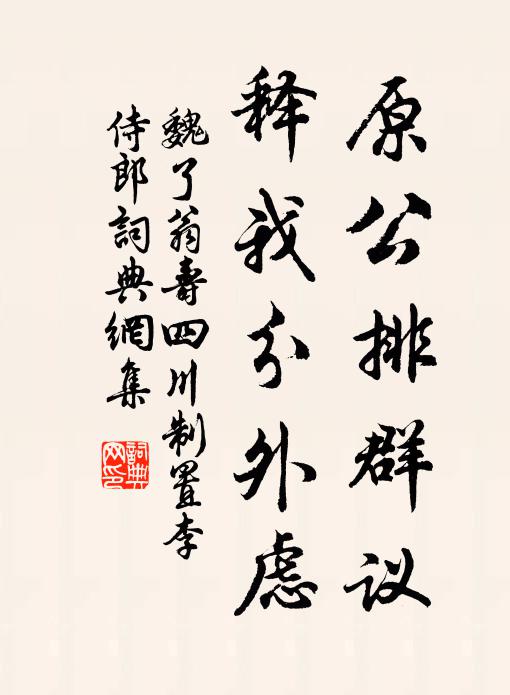 原公排群议
释我分外虑
魏了翁寿四川制置李
侍郎詞典網集
詞典网印